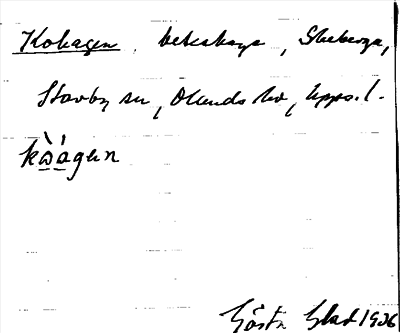 Kohagen, beteshage, Skeberga,
Stavby sn, Olands hd, Upps. l.
kὼ̠á̠gen
Gösta Glad 1936